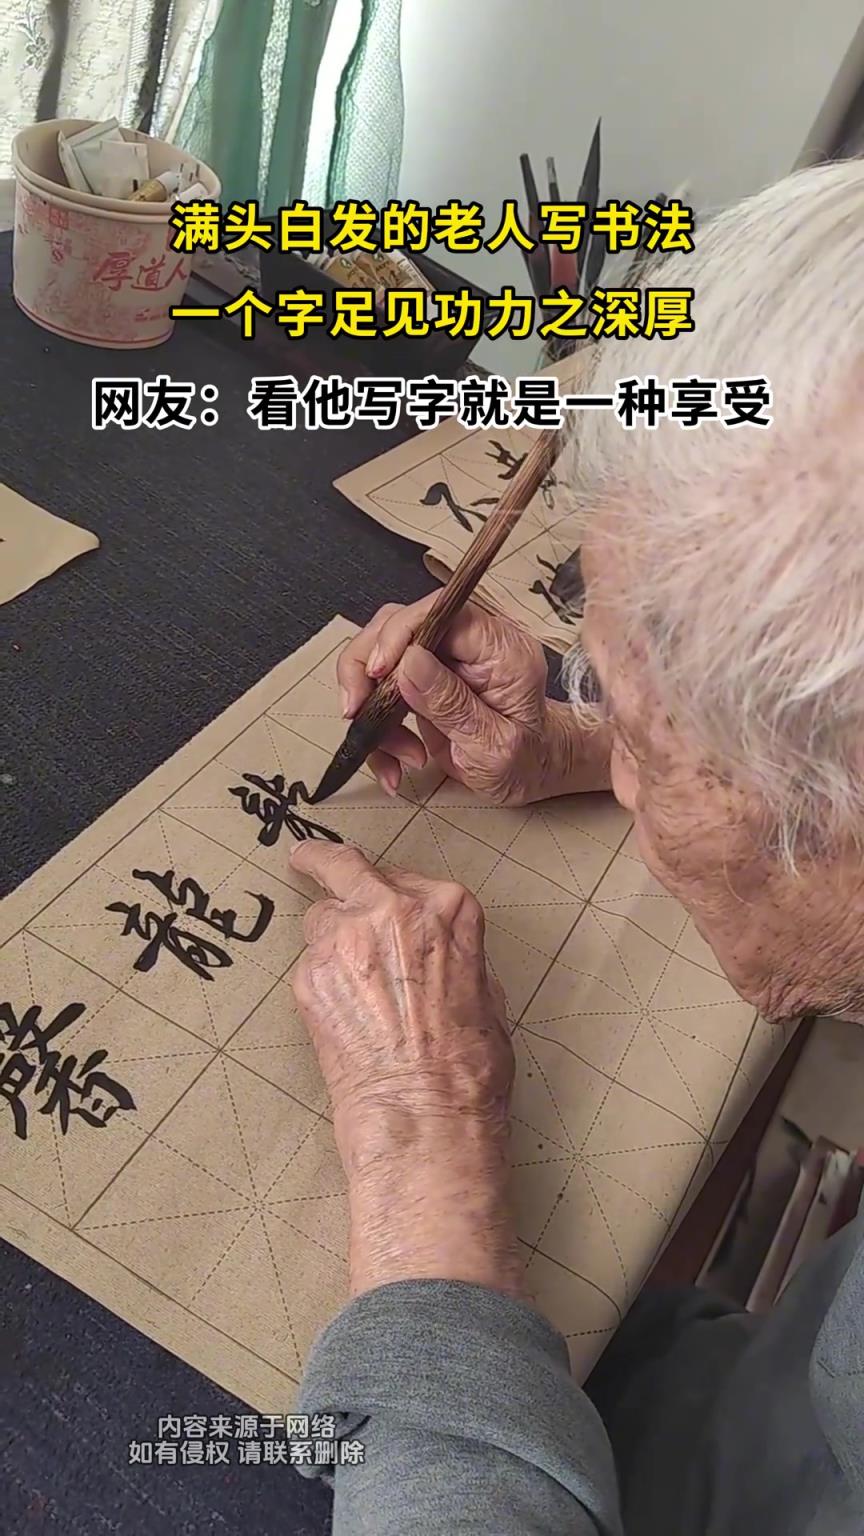 满头白发的老人写书法
一个字足见功力之深厚
网友：看他写字就是一种享受
厚道人
龍
馨
内容来源于网络
如有侵权 请联系删除